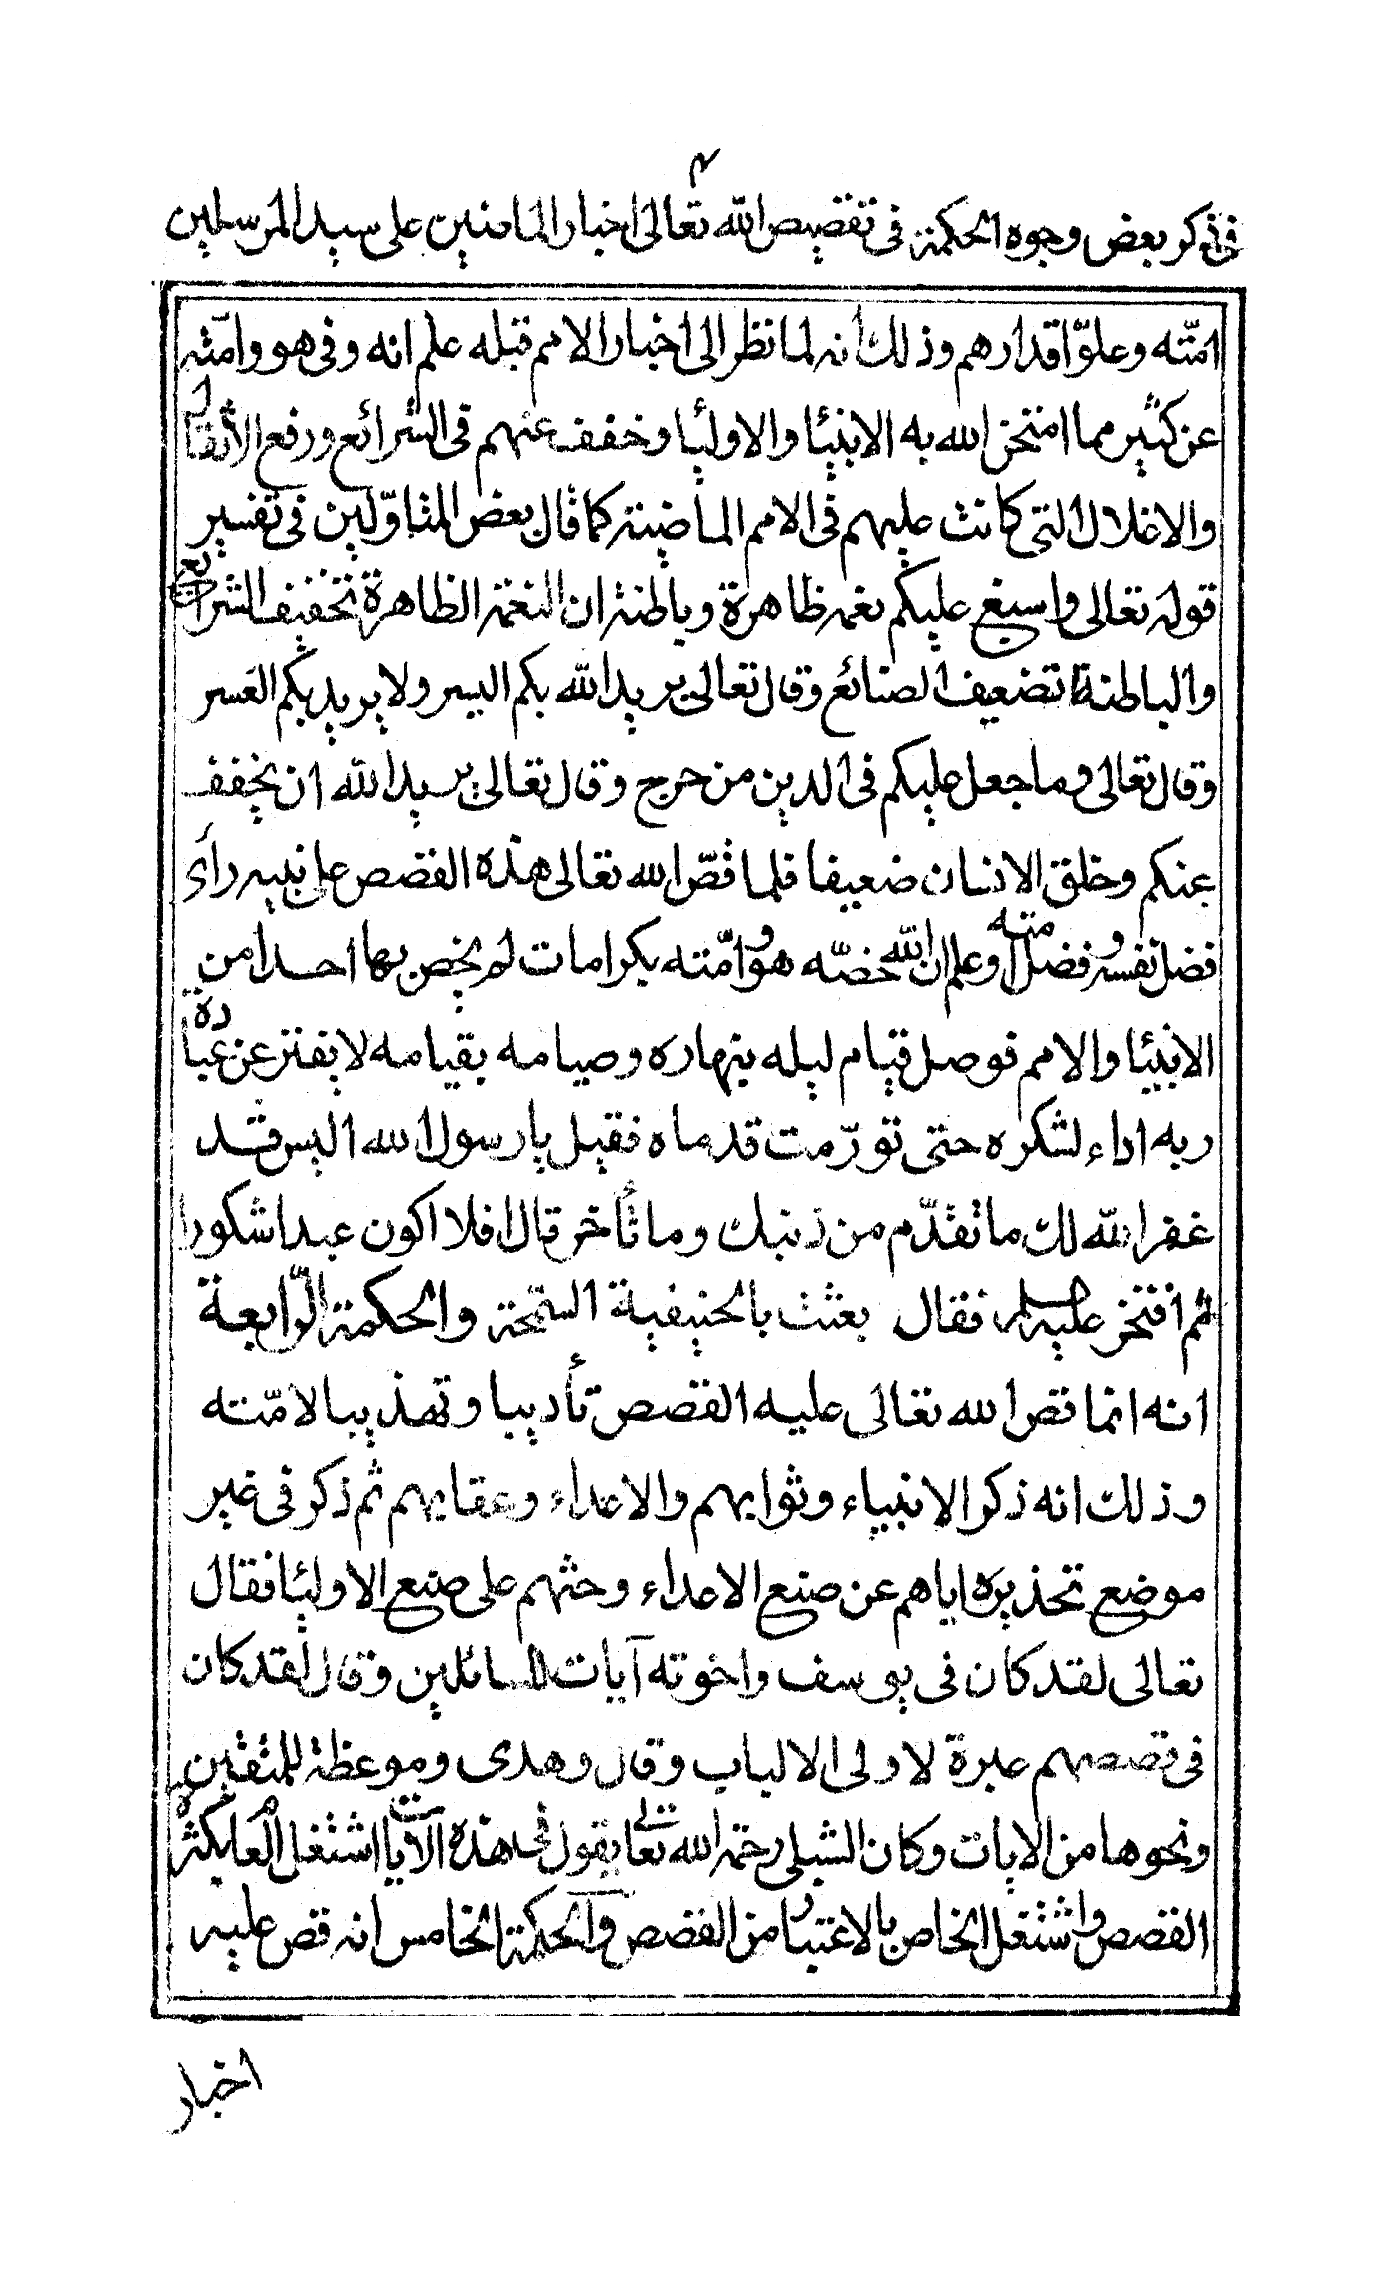 ٣
فى ذكر بعض وجوه الحكمة فى تقصيص الله تعالى اخبار الماضين على سيد المرسلين
امّته وعلوّ اقدارهم وذلك أنه لما نظر الى اخبار الامم قبله علم انه وفى هو وامّته
عن كثير مما امتحن الله به الانبيا والاوليا وخفف عنهم فى الشرائع ورفع الأثقال
والاغلال التى كانت عليهم فى الامم الماضية كما قال بعض المتاوّلين فى تفسير
قوله تعالى واسبغ عليكم نعمه ظاهرة وباطنة ان النعمة الظاهرة تخفيف الشرائع
والباطنة تضعيف الصنائع وقال تعالى يريد الله بكم اليسر ولا يريد بكم العسر
وقال تعالى وما جعل عليكم فى الدين من حرج وقال تعالى يريد الله ان يخفف
عنكم وخلق الانسان ضعيفا فلما قصّ الله تعالى هذه القصص على نبيه رأى
فضل نفسه وفضل امته وعلم ان الله خصّه هو وامّته بكرامات لم يخص بها احدا من
الانبيا والامم فوصل قيام ليله بنهاره وصيامه بقيامه لا يفتر عن عبادة
ربه اداء لشكره حتى تورّمت قدماه فقيل يا رسول الله اليس قد
غفر الله لك ما تقدّم من ذنبك وما تأخر قال افلا اكون عبدا شكورا
ثم افتخر عليه السلم فقال بعثت بالحنيفية السمحة والحكمة الرّابعة
انه انما قص الله تعالى عليه القصص تأديبا وتهذيبا لامّته
وذلك انه ذكر الانبياء وثوابهم والاعداء وعقابهم ثم ذكر فى غير
موضع تحذيره اياهم عن صنع الاعداء وحثهم على صنيع الاوليا فقال
تعالى لقد كان فى يوسف واخوته آيات للسائلين وقال لقد كان
فى قصصهم عبرة لاولى الالباب وقال وهدى وموعظة للمتقين
ونحوها من الايات وكان الشبلى رحمه الله تعالى يقول فى هذه الآيات اشتغل العام بذكر
القصص واشتغل الخاص بالاعتبار من القصص والحكمة الخامس انه قص عليه
اخبار